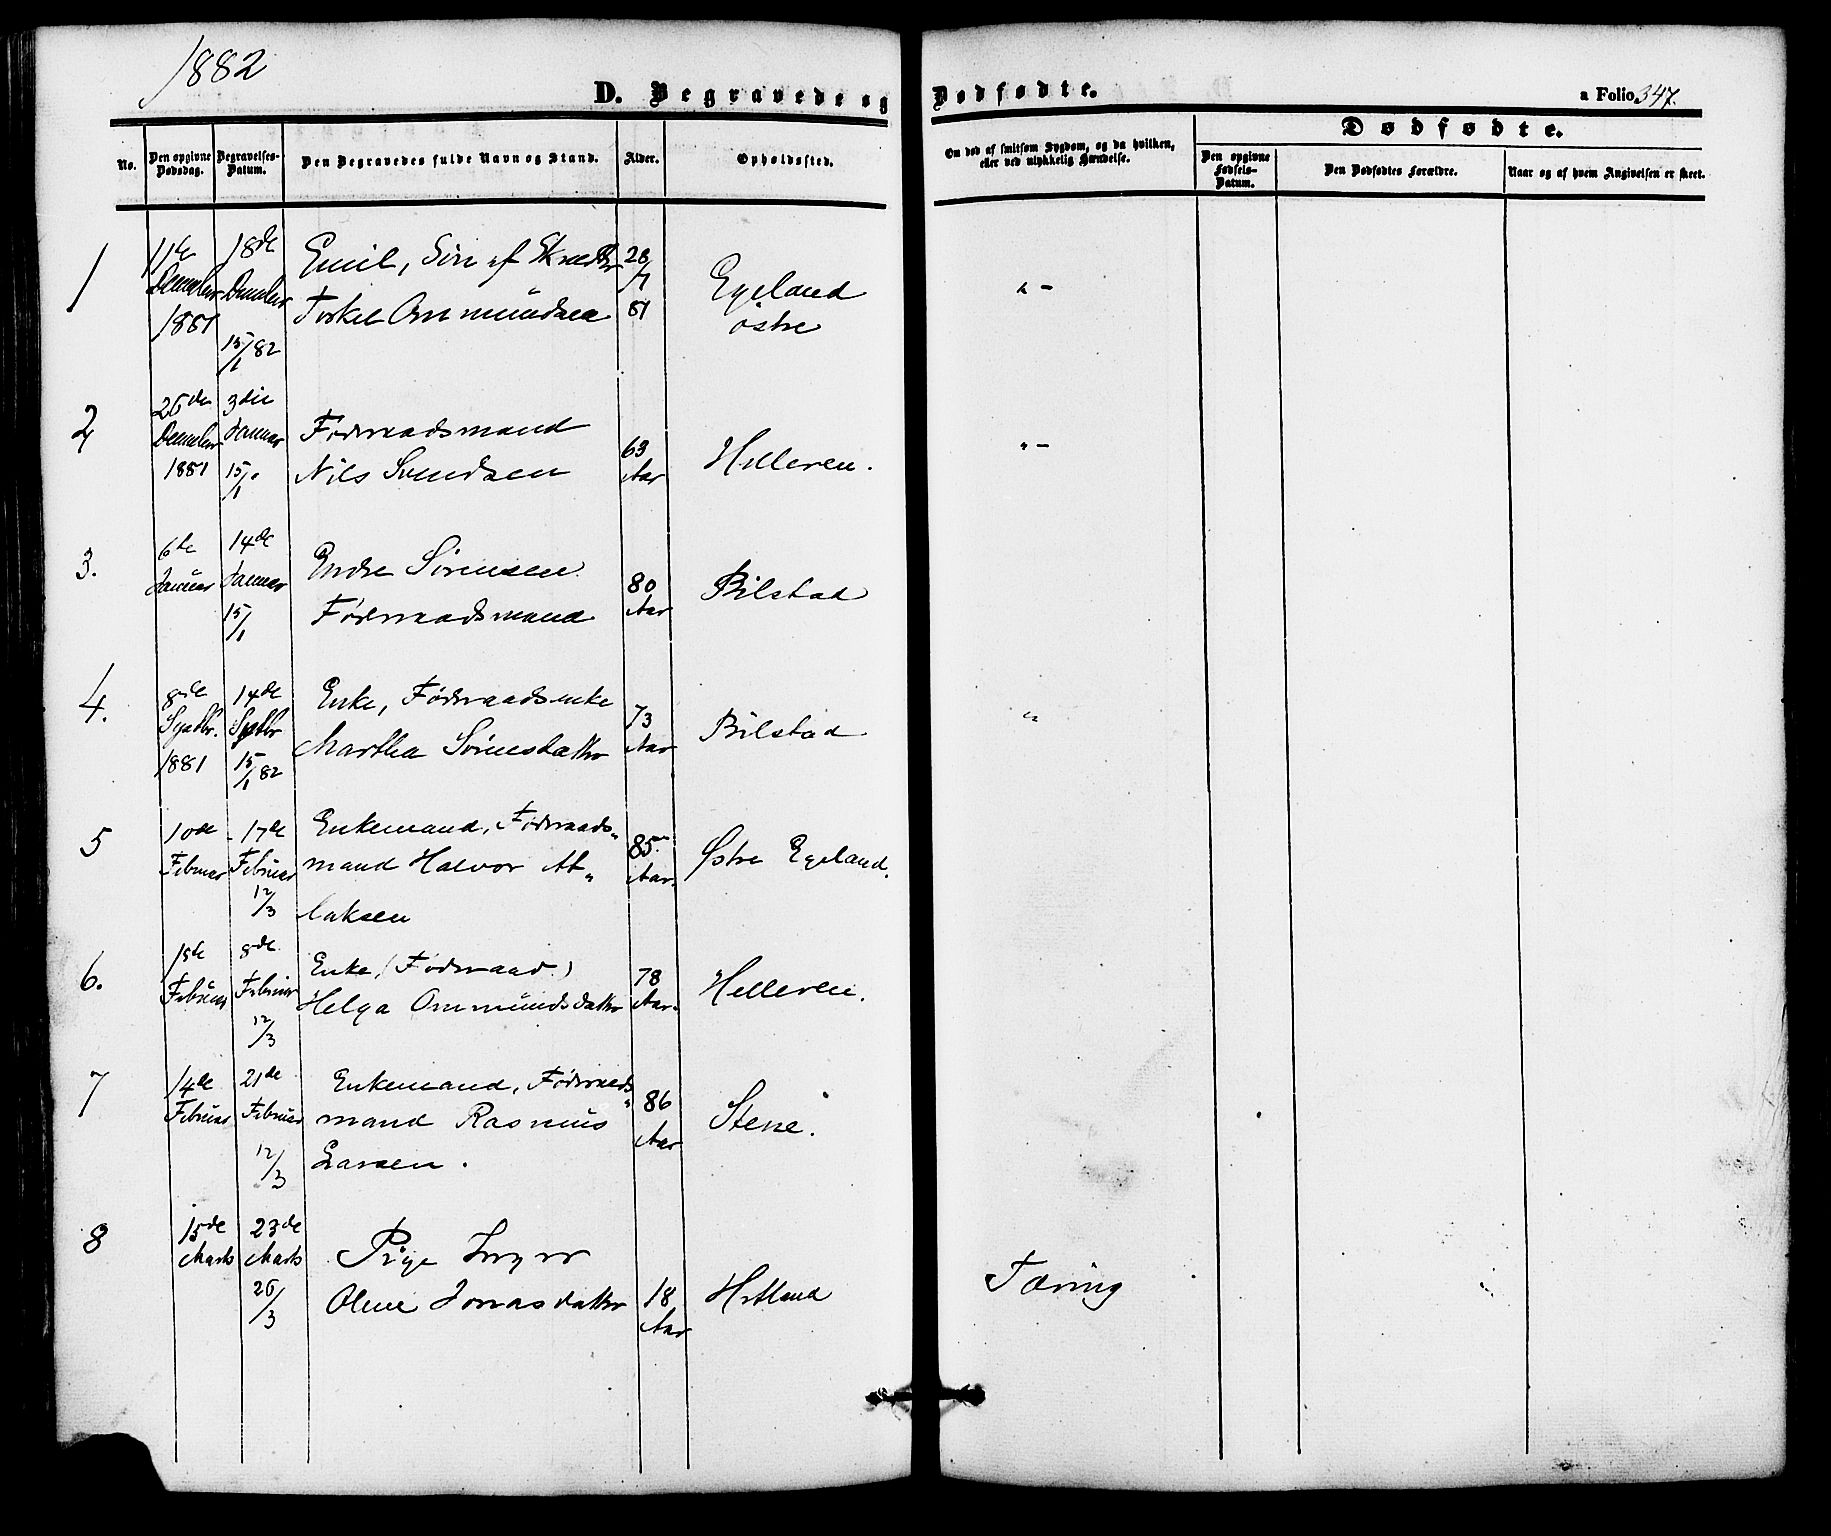 1882
D. Begravede og Dødfødte.
a Folio 347.
No.
Den opgivne Dødsdag.
Begravelses-Datum.
Den Begravedes fulde Navn og Stand.
Alder.
Opholdssted.
Om død af smitsom Sygdom, og da hvilken,
eller ved ulykkelig Hændelse.
Dødfødte.
Den opgivne Fødsels-Datum.
Den Dødfødtes Forældre.
Naar og af hvem Angivelsen er skeet.
1
11te December 1881
18de December 15/1 82
Emil, Søn af
Torkel Ommundsen
28/7 81
Egeland
østre
" -
2
26de December 1881
3die Januar 15/1
Føderaadsmand
Nils Svendsen
63 Aar
Helleren.
" -
3.
6te Januar
14de Januar 15/1
Endre Sørensen
Føderaadsmand
80 Aar
Bilstad
4.
8de Septbr. 1881
14de Septbr 15/1 82
Enke, Føderaadsenke
Martha Sørensdatter
73 Aar
Bilstad
"
5
10de Februar
17de Februar 12/3
Enkemand, Føderaads„
mand Halvor At„
laksen
85 Aar.
Østre Egeland.
6.
1ste Februar
8de Februar 12/3
Enke, (Føderaad.)
Helga Ommundsdatter
78 Aar.
Helleren.
7
14de Februar
21de Februar 12/3
Enkemand, Føderaads„
mand Rasmus
Larsen.
86 Aar
Stene.
8
15de Marts
23de Marts 26/3
Pige
Oline Jonasdatter
18 Aar
Hetland
Tæring